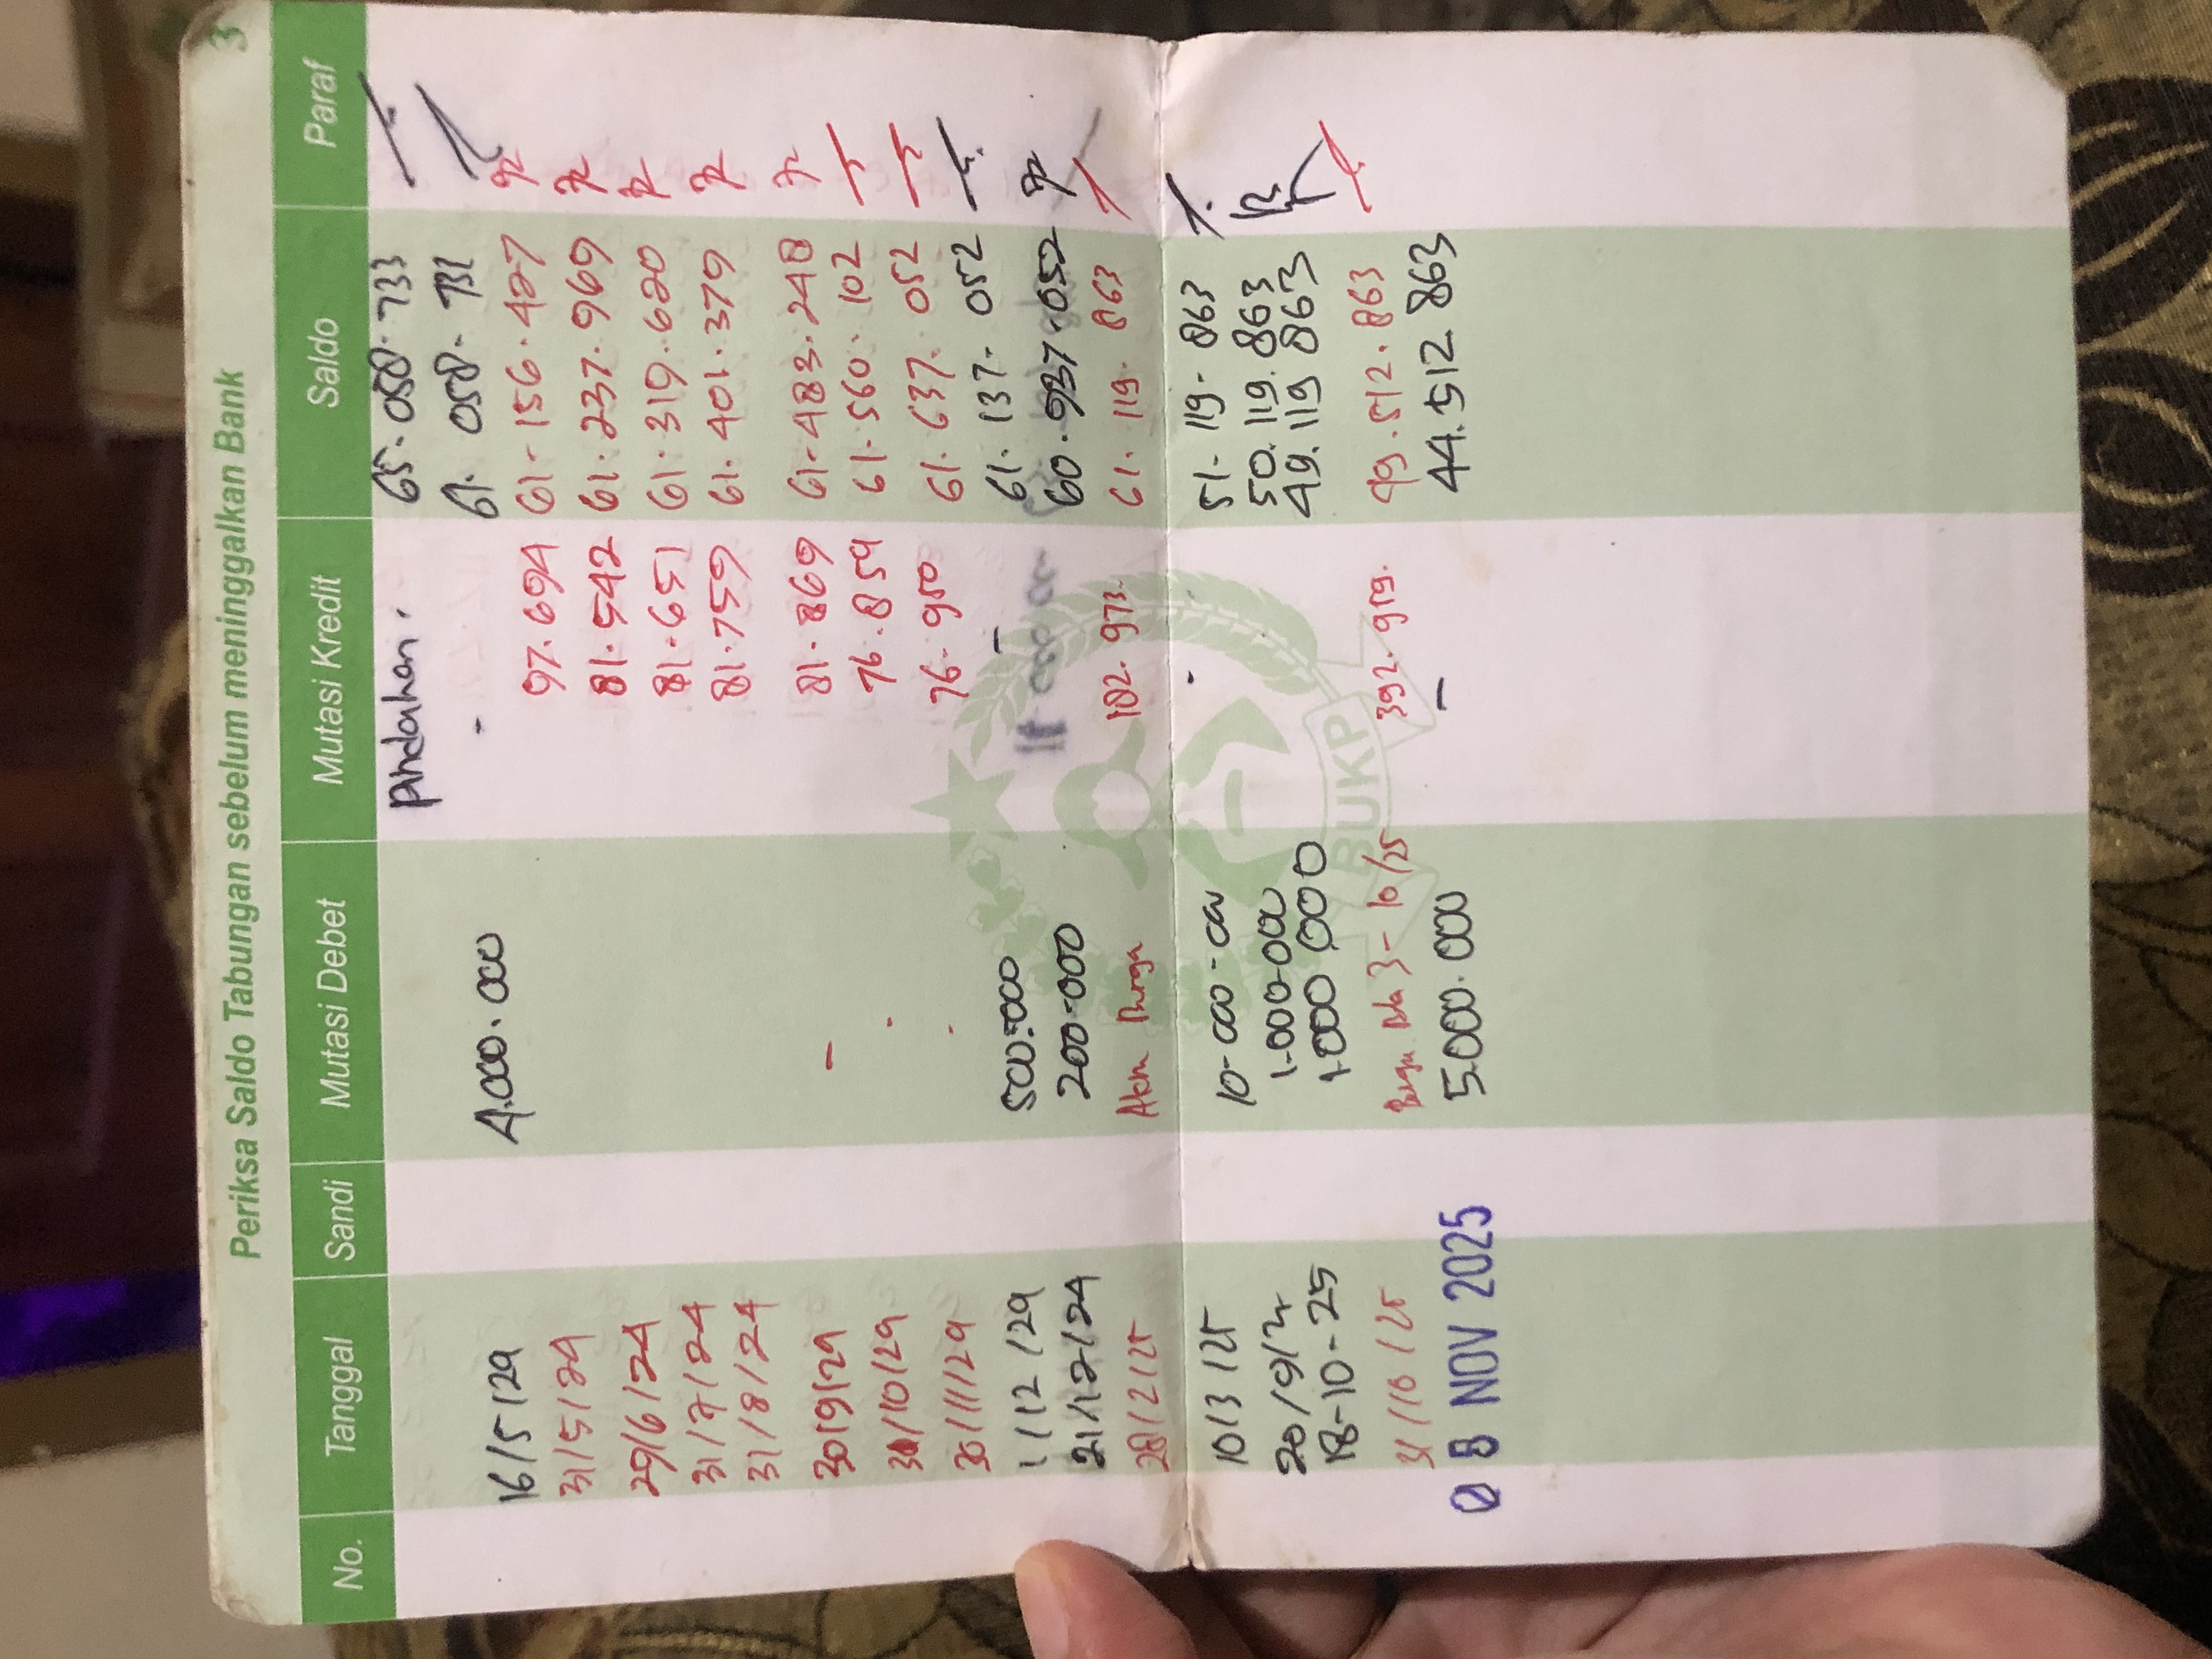 3
Periksa Saldo Tabungan sebelum meninggalkan Bank
No. Tanggal Sandi Mutasi Debet Mutasi Kredit Saldo Paraf
Pindahan. 65.058.733
16/5/24 4.000.000 - 61.058.733
31/5/24 97.694 61.156.427
29/6/24 81.542 61.237.969
31/7/24 81.651 61.319.620
31/8/24 81.759 61.401.379
30/9/24 - 81.869 61.483.248
30/10/24 76.854 61.560.102
30/11/24 76.950 61.637.052
1/12/24 500.000 - 61.137.052
21/12/24 200.000 60.937.052
28/2/25 Akm Bunga 182.973 61.119.863
10/3/25 10.000.000 - 51.119.863
20/9/25 1.000.000 50.119.863
18-10-25 1.000.000 49.119.863
31/10/25 Bunga bln 3-10/25 392.919. 49.512.863
08 NOV 2025 5.000.000 - 44.512.863
BUKP